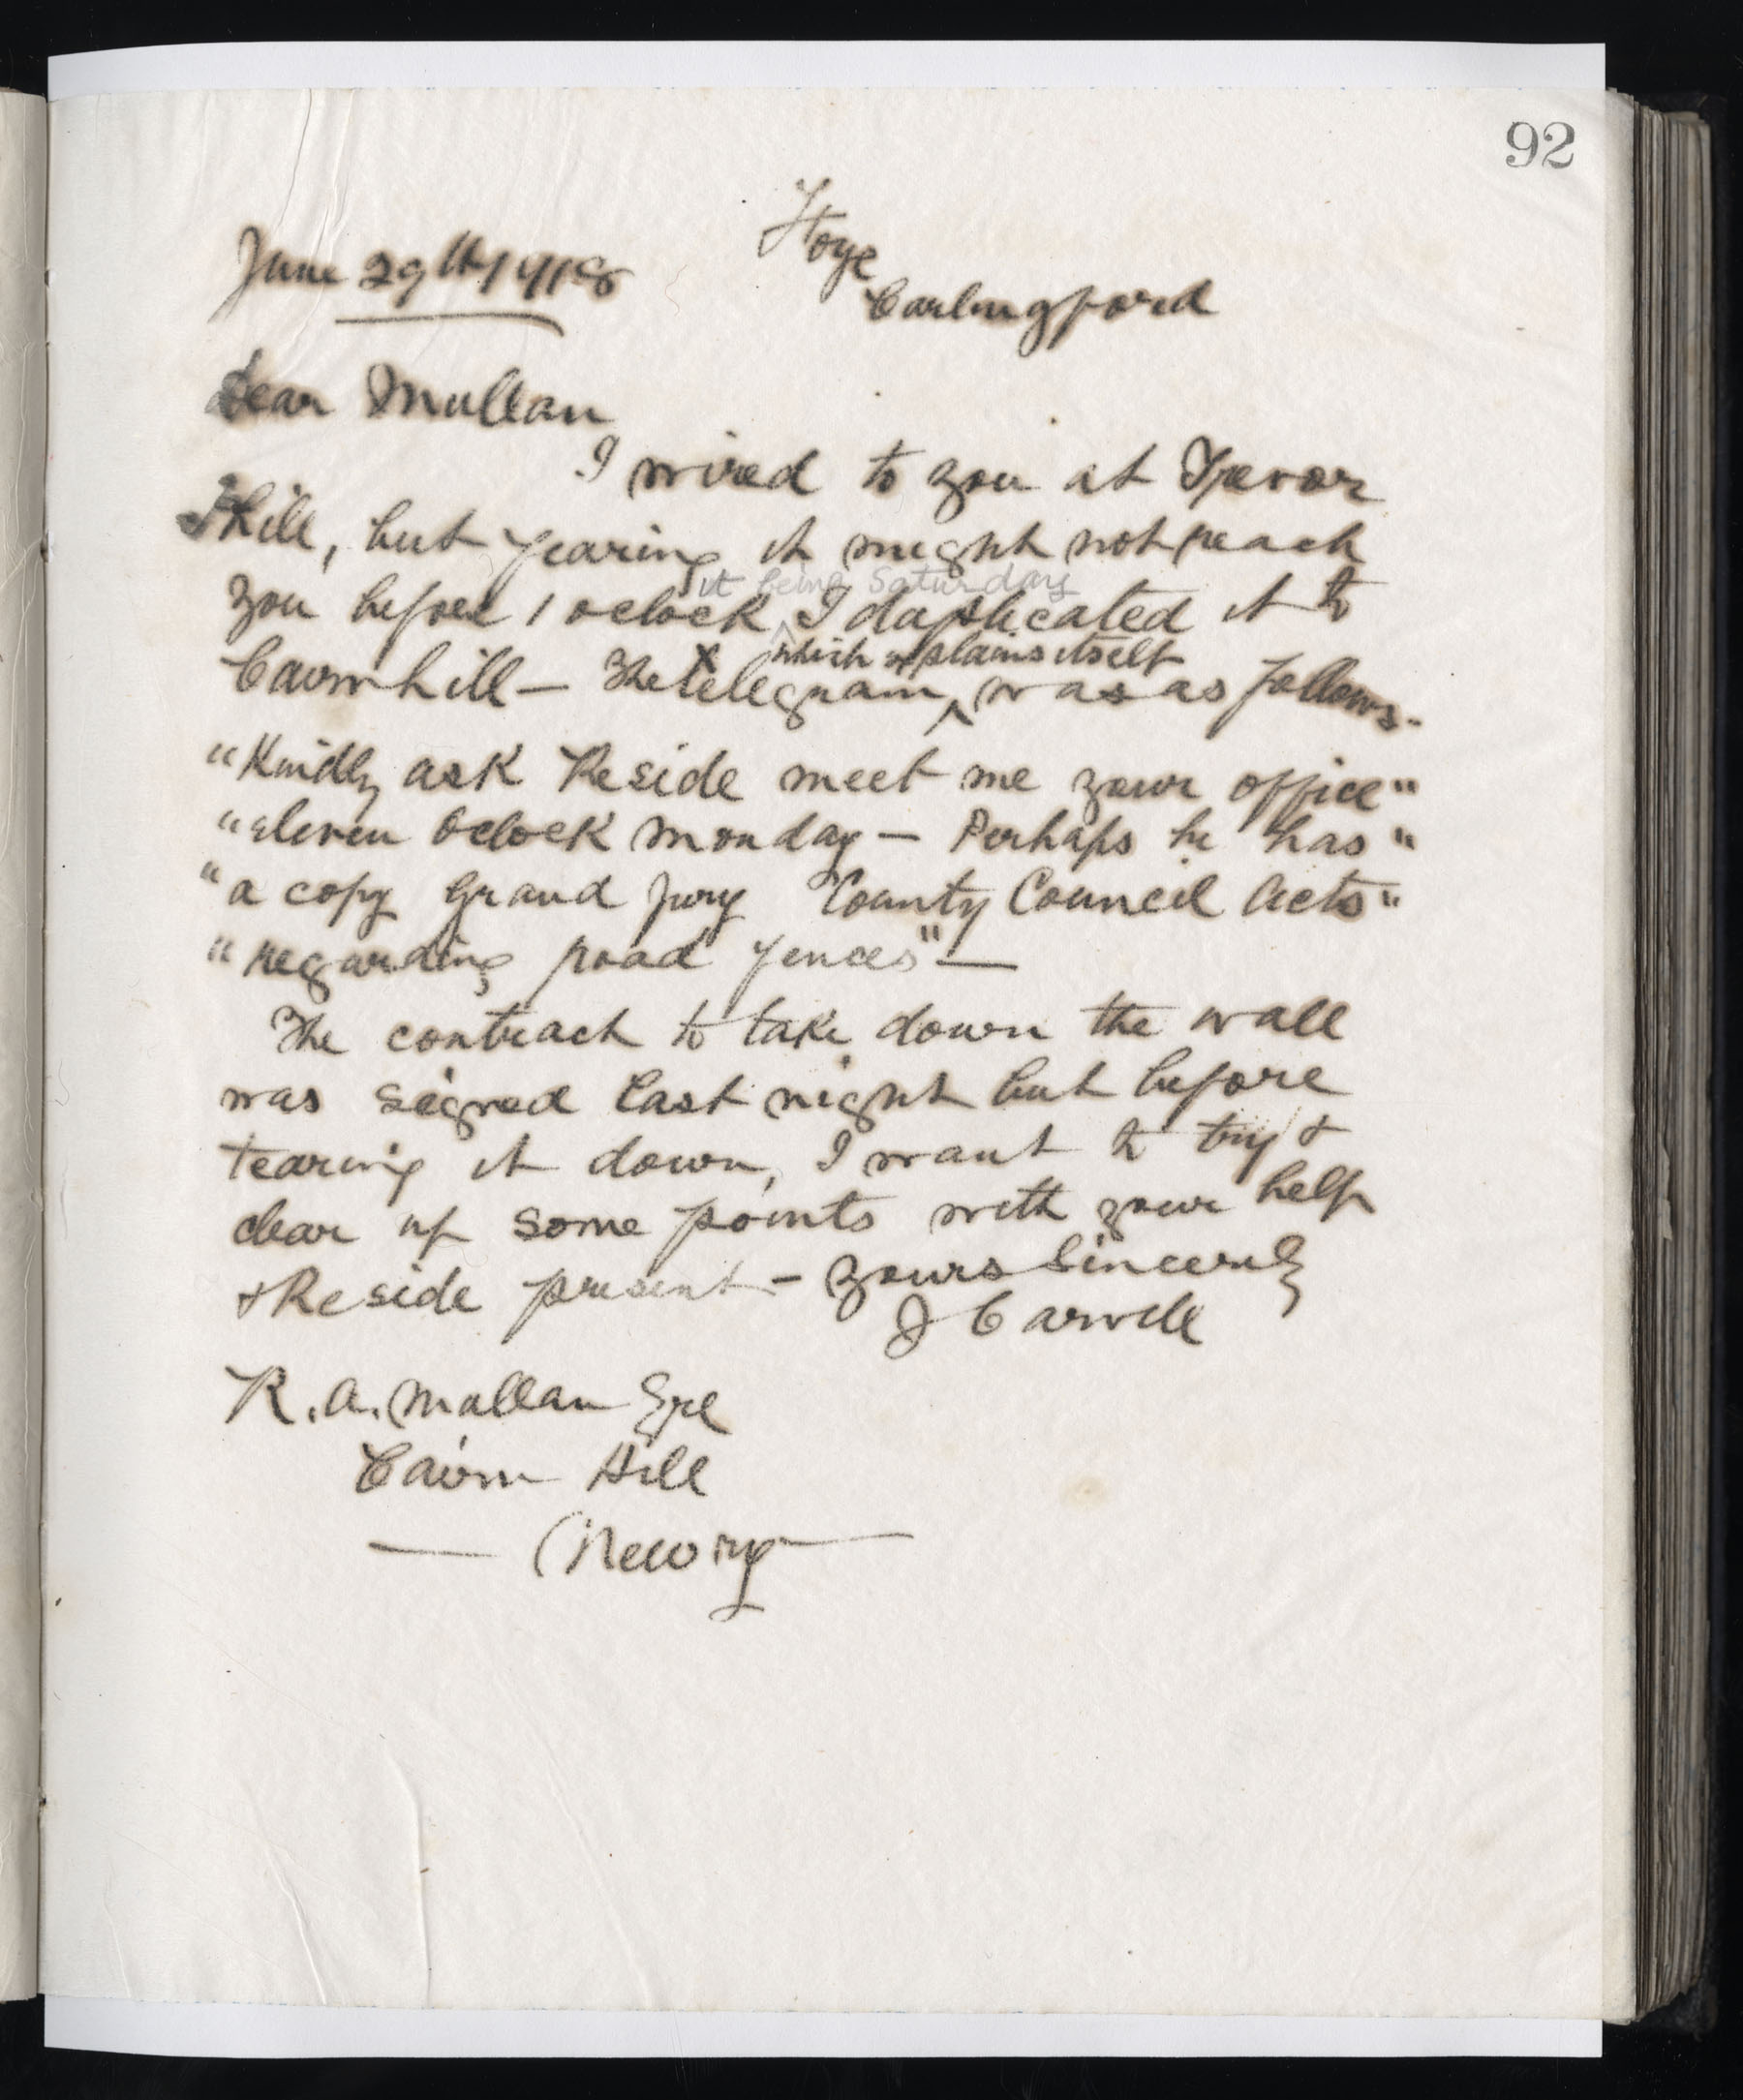 92
June 29th/1918
Foye
Carlingford
Dear Mullan
I wired to you at Trevor
Hill, but fearing it might not reach
it being Saturday
you before 1 oclock I duplicated it to
which explains itself
Cairnhill — The telegram was as follows.
"Kindly ask Reside meet me your office"
"eleven oclock Monday — Perhaps he has"
"a copy Grand Jury County Council Acts"
"regarding road fences" —
The contract to take down the wall
was signed last night but before
tearing it down, I want to try &
clear up some points with your help
& Reside present — Yours Sincerely
J Carvill
R. A. Mullan Esq
Cairn Hill
— Newry —